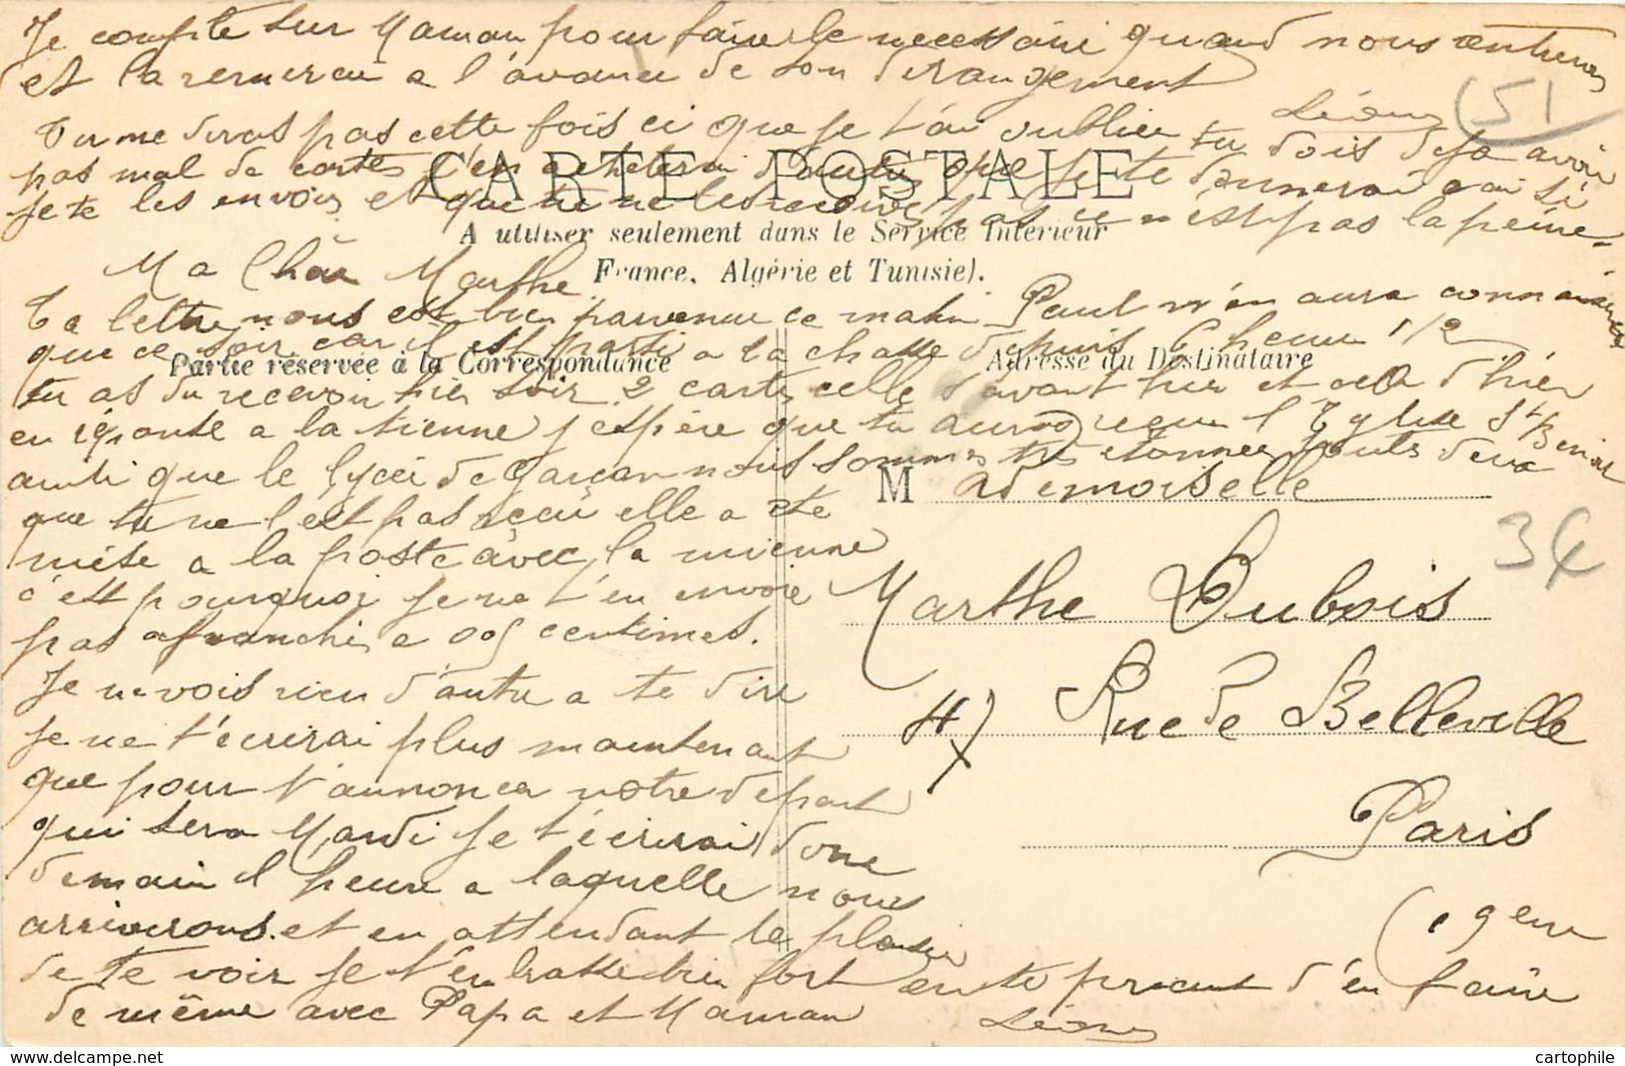 Je compte sur Maman pour faire le necessaire quand nous rentrerons
et la remercu a l'avance de son derangement
Léon
51
Tu me diras pas cette fois ci que je t'ai oublier tu dois deja avoir
pas mal de cartes t'en acheterai d'autre que je te donnerai car si
je te les envois et que tu ne les recoives pas ce n'est pas la peine
CARTE POSTALE
A utiliser seulement dans le Service Intérieur
France, Algérie et Tunisie).
Ma Chère Marthe
Ta lettre nous est bien parvenue ce matin Paul n'en aura connaissance
que ce soir car il est parti a la chasse depuis 6 heure 1/2
Partie réservée à la Correspondance
Adresse du Destinataire
tu as du recevoir hier soir 2 cartes celle d'avant hier et cela d'hier
en réponse a la tienne j'espère que tu auras reçu l'Eglise St
ainsi que le lycée de Garçon nous sommes tres etonner touts deux
que tu ne l'est pas reçu elle a été
mise a la poste avec la mienne
c'est pourquoi je ne t'en envoie
pas afranchis a 005 centimes.
Je ne vois rien d'autre a te dire
je ne t'écrirai plus maintenant
que pour t'annoncer notre depart
qui sera Mardi je t'écrirai donc
demain l heure a laquelle nous
arriverons et en attendant le plaisir
de te voir je t'embrasse bien fort en te priant d'en faire
de même avec Papa et Maman
Léon
M ademoiselle
Marthe Dubois
47 Rue de Belleville
Paris
34